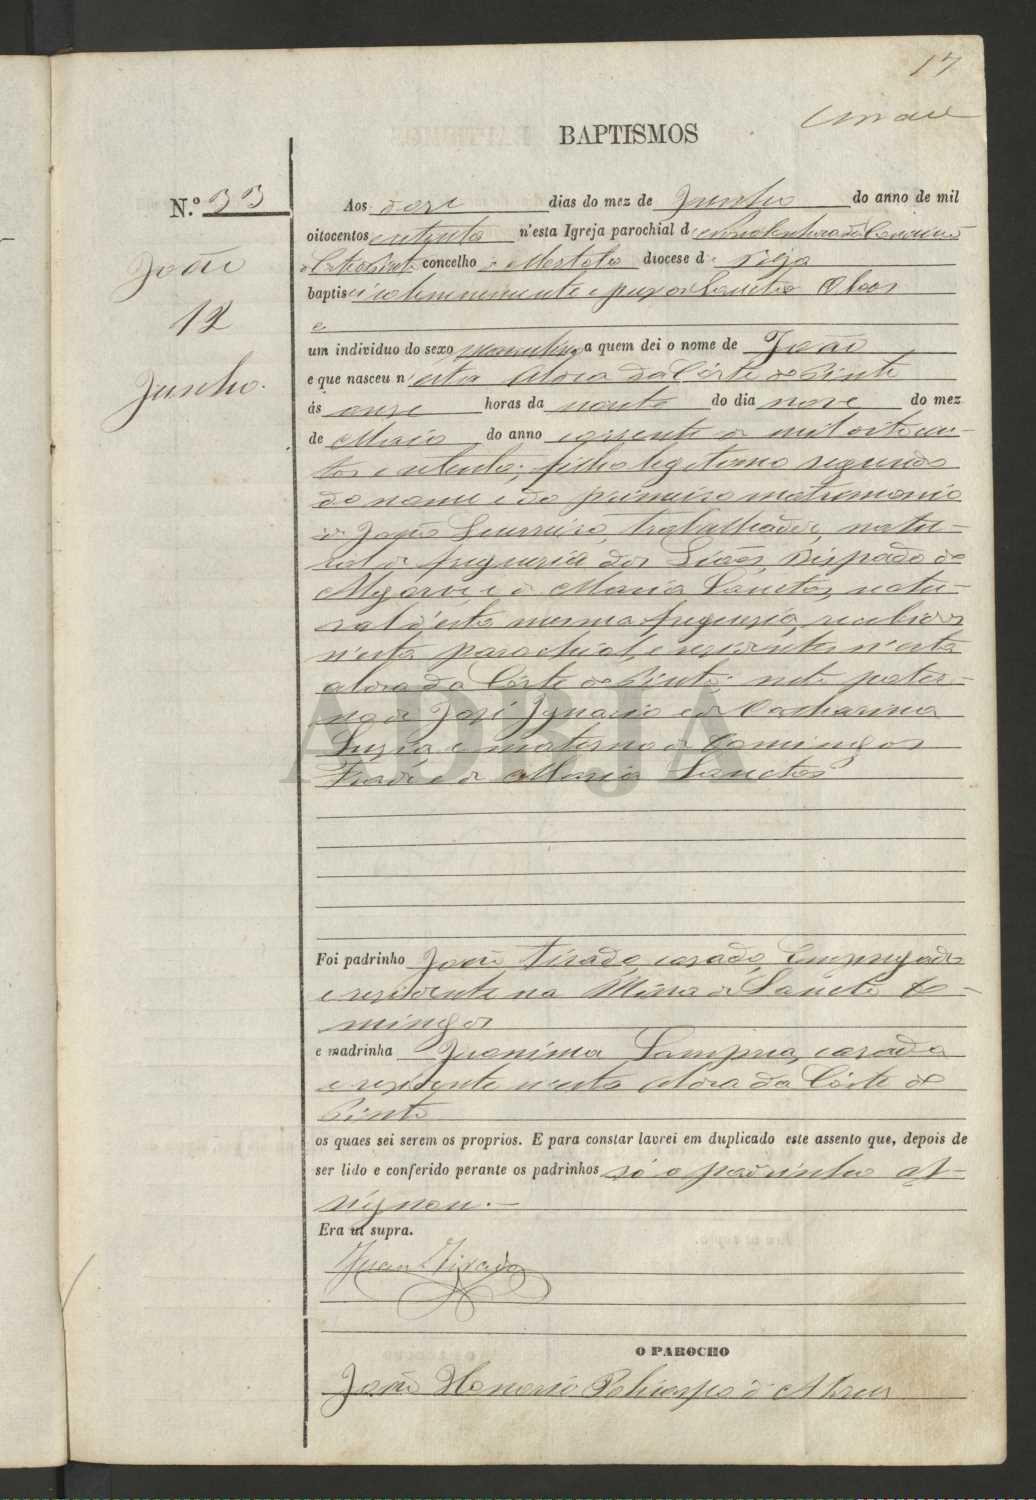 17
BAPTISMOS
N.º 33
João
12
Junho.
Aos doze dias do mez de Junho do anno de mil
oitocentos e oitenta n'esta Igreja parochial de Nossa Senhora da Conceição
concelho de Mertola diocese de Beja
baptisei solemnemente e puz os Sanctos Oleos
e
um individuo do sexo masculino a quem dei o nome de João
e que nasceu n'esta Aldea da Côrte do Pinto
ás onze horas da noute do dia nove do mez
de Maio do anno corrente de mil oitocen-
tos e oitenta; filho legitimo segundo
do nome e do primeiro matrimonio
de João Lourreiro, trabalhador, natu-
ral da freguesia dos Giões, Bispado do
Algarve e de Maria Sanctos, natu-
ral d'esta mesma freguesia, recebidos
n'esta parochial, e residentes n'esta
aldea da Côrte do Pinto: neto pater-
no de José Ignacio e de Catharina
Luzia e materno de Domingos
e de Maria Sanctos
Foi padrinho João Tirado, casado, Empregado
e residente na Mina de Sancto Do-
mingos
e madrinha Jeronima casada
e residente n'esta Aldea da Côrte do
Pinto
os quaes sei serem os proprios. E para constar lavrei em duplicado este assento que, depois de
ser lido e conferido perante os padrinhos só o padrinho as-
signou.—
Era ut supra.
Juan Tirado
O PAROCHO
João Honorio Policarpo d'Abreu
ADBJA